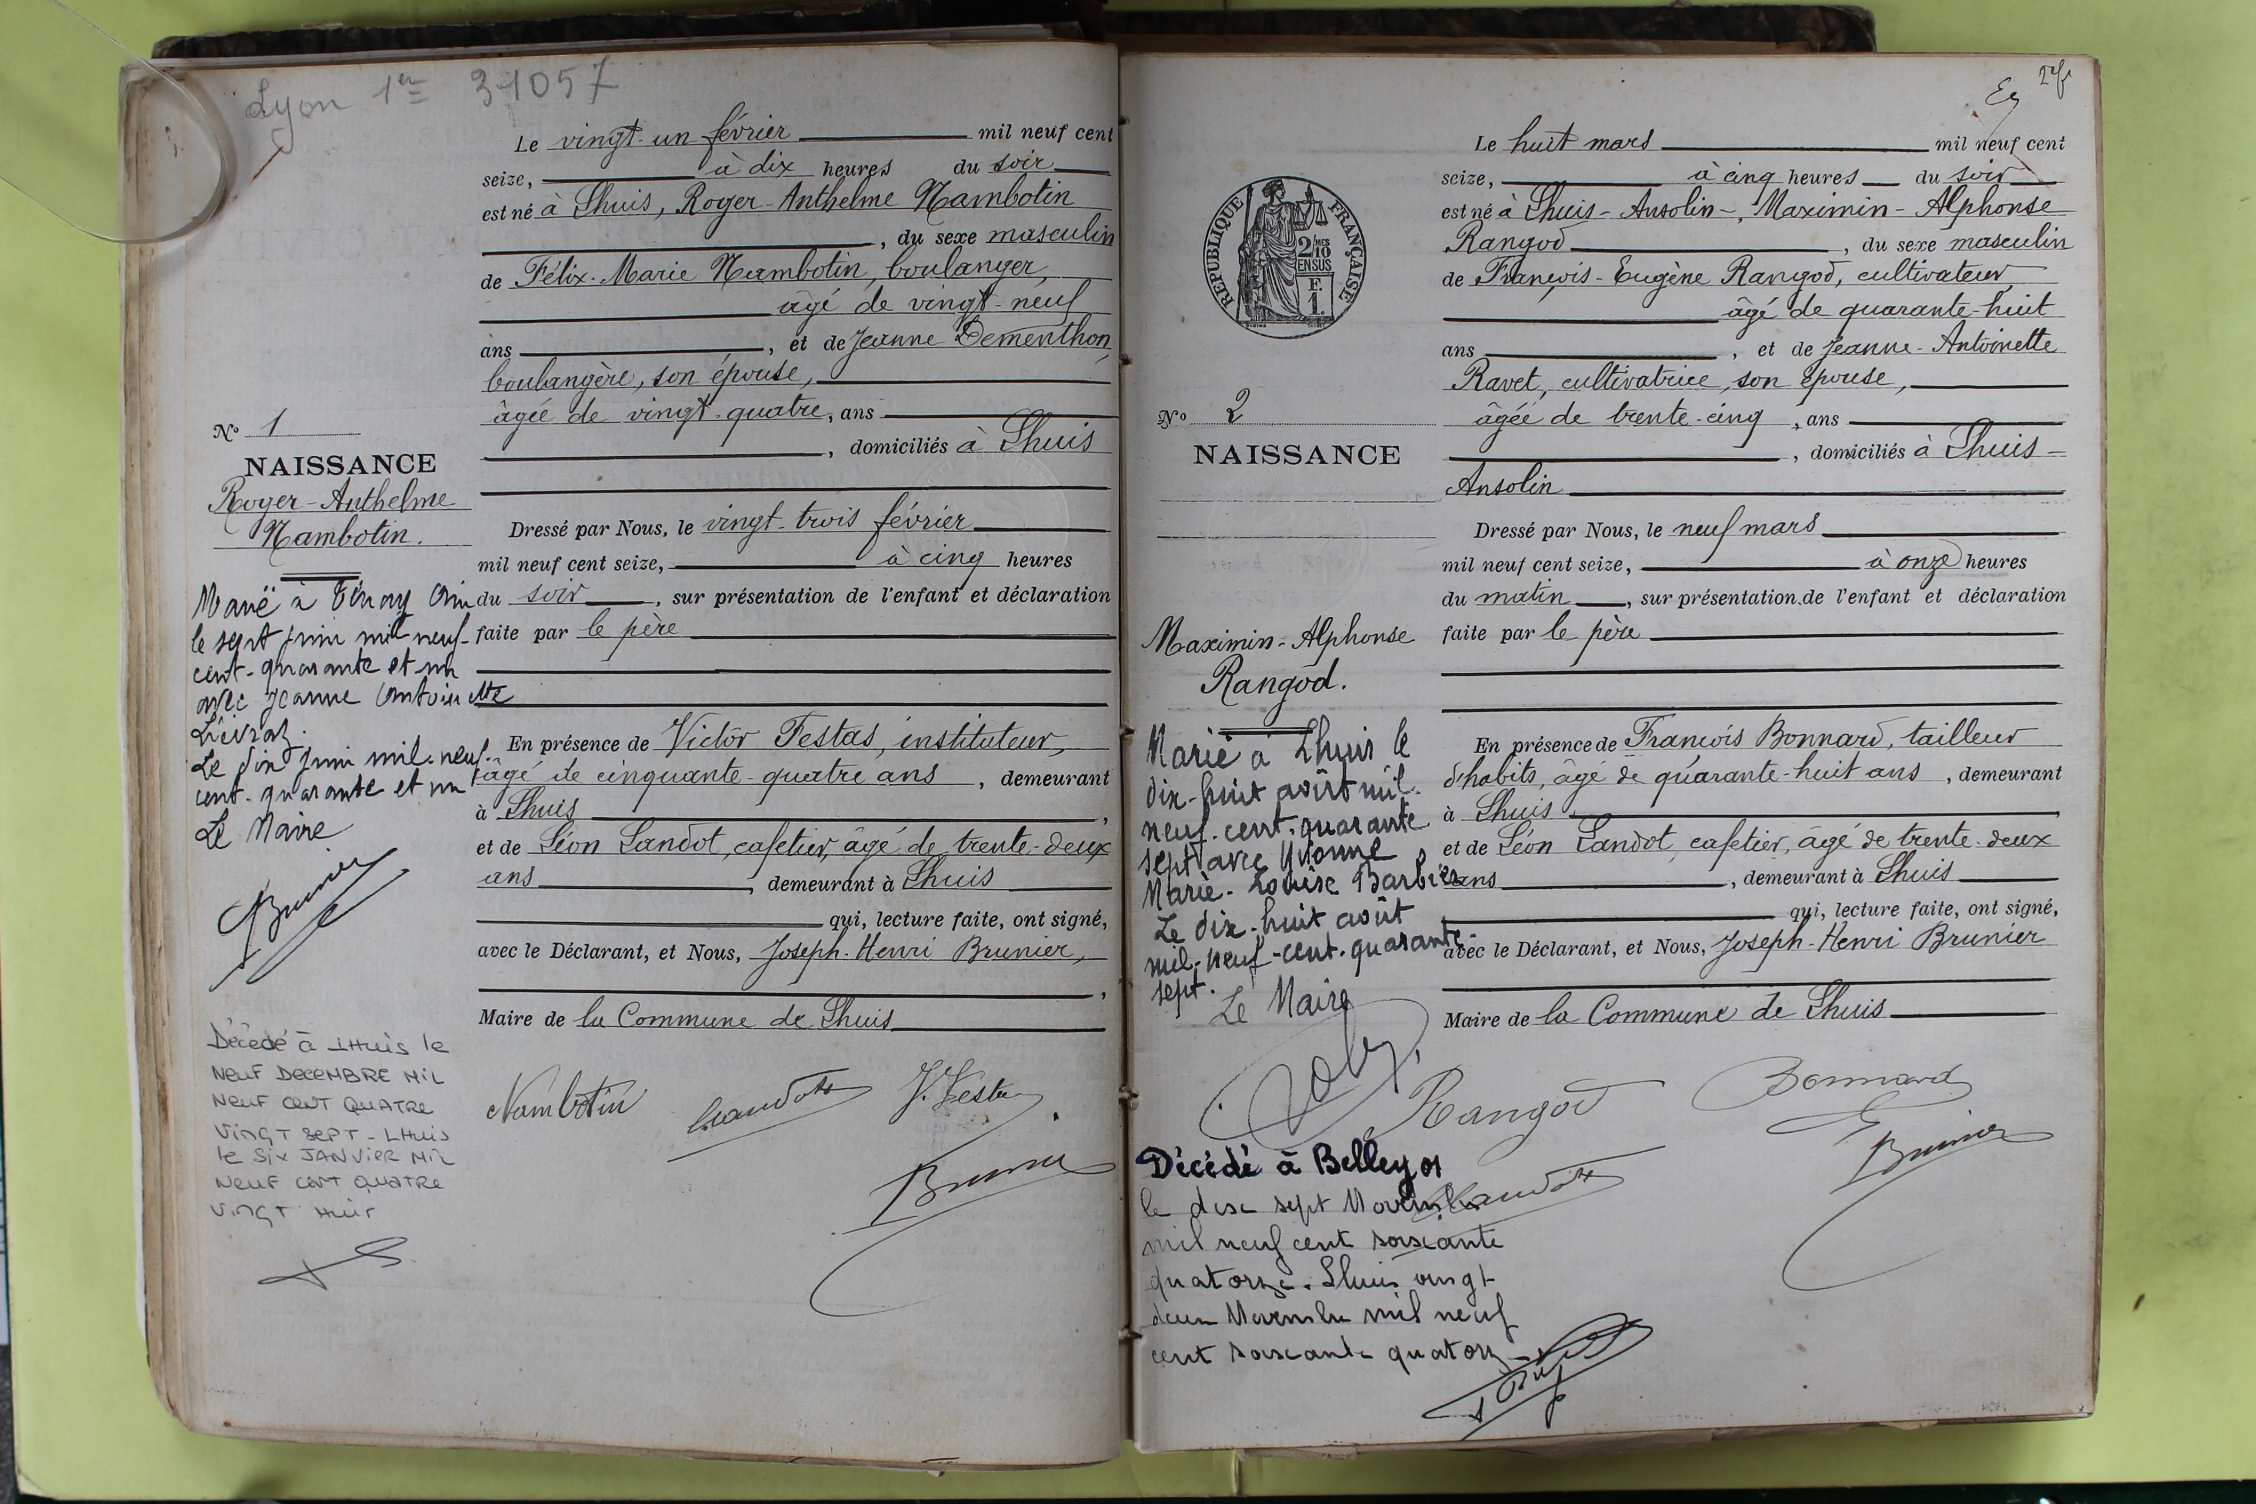 Lyon 1er 31057
Le vingt-un février mil neuf cent
seize, à dix heures du soir
est né à Lhuis, Roger-Anthelme Nambotin
, du sexe masculin
de Félix-Marie Nambotin, boulanger,
âgé de vingt-neuf
ans , et de Jeanne Dementhon,
boulangère, son épouse,
âgée de vingt-quatre, ans
, domiciliés à Lhuis
No 1
NAISSANCE
Roger-Anthelme
Nambotin.
Marié à Tenay Ain
le sept juin mil neuf-
cent-quarante et un
avec Jeanne Antoinette
Le dix juin mil-neuf-
cent-quarante et un
Le Maire
Brunier
Décédé à LHuis le
NEUF DECEMBRE MIL
NEUF CENT QUATRE
VINGT SEPT - LHuis
le Six JANVIER MIL
NEUF CENT QUATRE
VINGT HUIT
Dressé par Nous, le vingt-trois février
mil neuf cent seize, à cinq heures
du soir , sur présentation de l'enfant et déclaration
faite par le père
En présence de Victor Festas, instituteur,
âgé de cinquante-quatre ans , demeurant
à Lhuis ,
et de Léon Landot, cafetier, âgé de trente-deux
ans , demeurant à Lhuis
qui, lecture faite, ont signé,
avec le Déclarant, et Nous, Joseph-Henri Brunier,
,
Maire de la Commune de Lhuis
Nambotin Landot V. Festas
Brunier
2
Le huit mars mil neuf cent
seize, à cinq heures du soir
est né à Lhuis-Ansolin-, Maximin-Alphonse
Rangod , du sexe masculin
de François-Eugène Rangod, cultivateur
âgé de quarante-huit
ans , et de Jeanne-Antoinette
Ravet, cultivatrice, son épouse,
âgée de trente-cinq , ans
, domiciliés à Lhuis-
Ansolin
RÉPUBLIQUE FRANÇAISE
2/10MES
EN SUS
F.
1.
No 2
NAISSANCE
Maximin-Alphonse
Rangod.
Marié à Lhuis le
dix-huit août mil-
neuf-cent-quarante
sept avec Yvonne
Marie-Louise Barbier
Le dix-huit août
mil-neuf-cent-quarante-
sept.
Le Maire
Décédé à Belley 01
le dix sept Novembre
mil neuf cent soixante
quatorze. Lhuis vingt
deux Novembre mil neuf
cent soixante quatorze
Dressé par Nous, le neuf mars
mil neuf cent seize, à onze heures
du matin , sur présentation de l'enfant et déclaration
faite par le père
En présence de François Bonnard, tailleur
d'habits, âgé de quarante-huit ans , demeurant
à Lhuis
et de Léon Landot, cafetier, âgé de trente-deux
ans , demeurant à Lhuis
qui, lecture faite, ont signé,
avec le Déclarant, et Nous, Joseph-Henri Brunier
Maire de la Commune de Lhuis
Rangod Bonnard
Landot Brunier